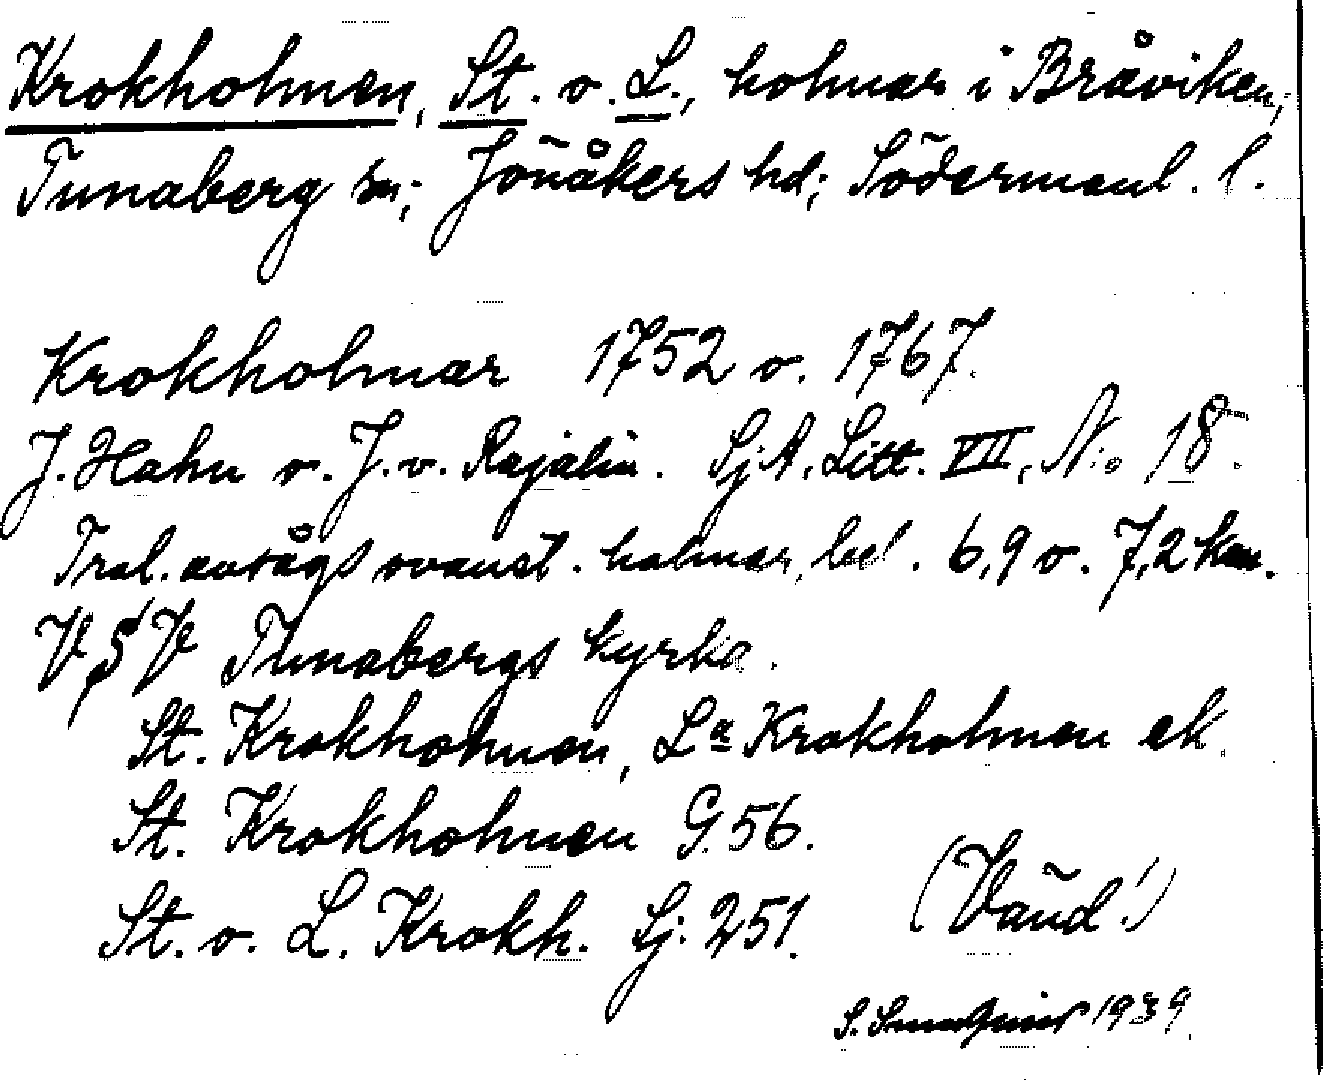 Krokholmen, St. o. L., holmar i Bråviken,
Tunaberg sn; Jönåkers hd; Södermanl. l.
Krokholmar 1752 o. 1767.
J. Hahn o. J. v. Rajalin. SjA, Litt. VII, No 18.
Tral. avlågs ovanst. holmar, bel. 6,9 o. 7,2 km.
V§V Tunabergs kyrka.
St. Krokholmen, La Krokholmen ek.
St. Krokholmen G. 56.
St. o. L. Krokh. Sj. 251.
(Vänd!)
S. 1939